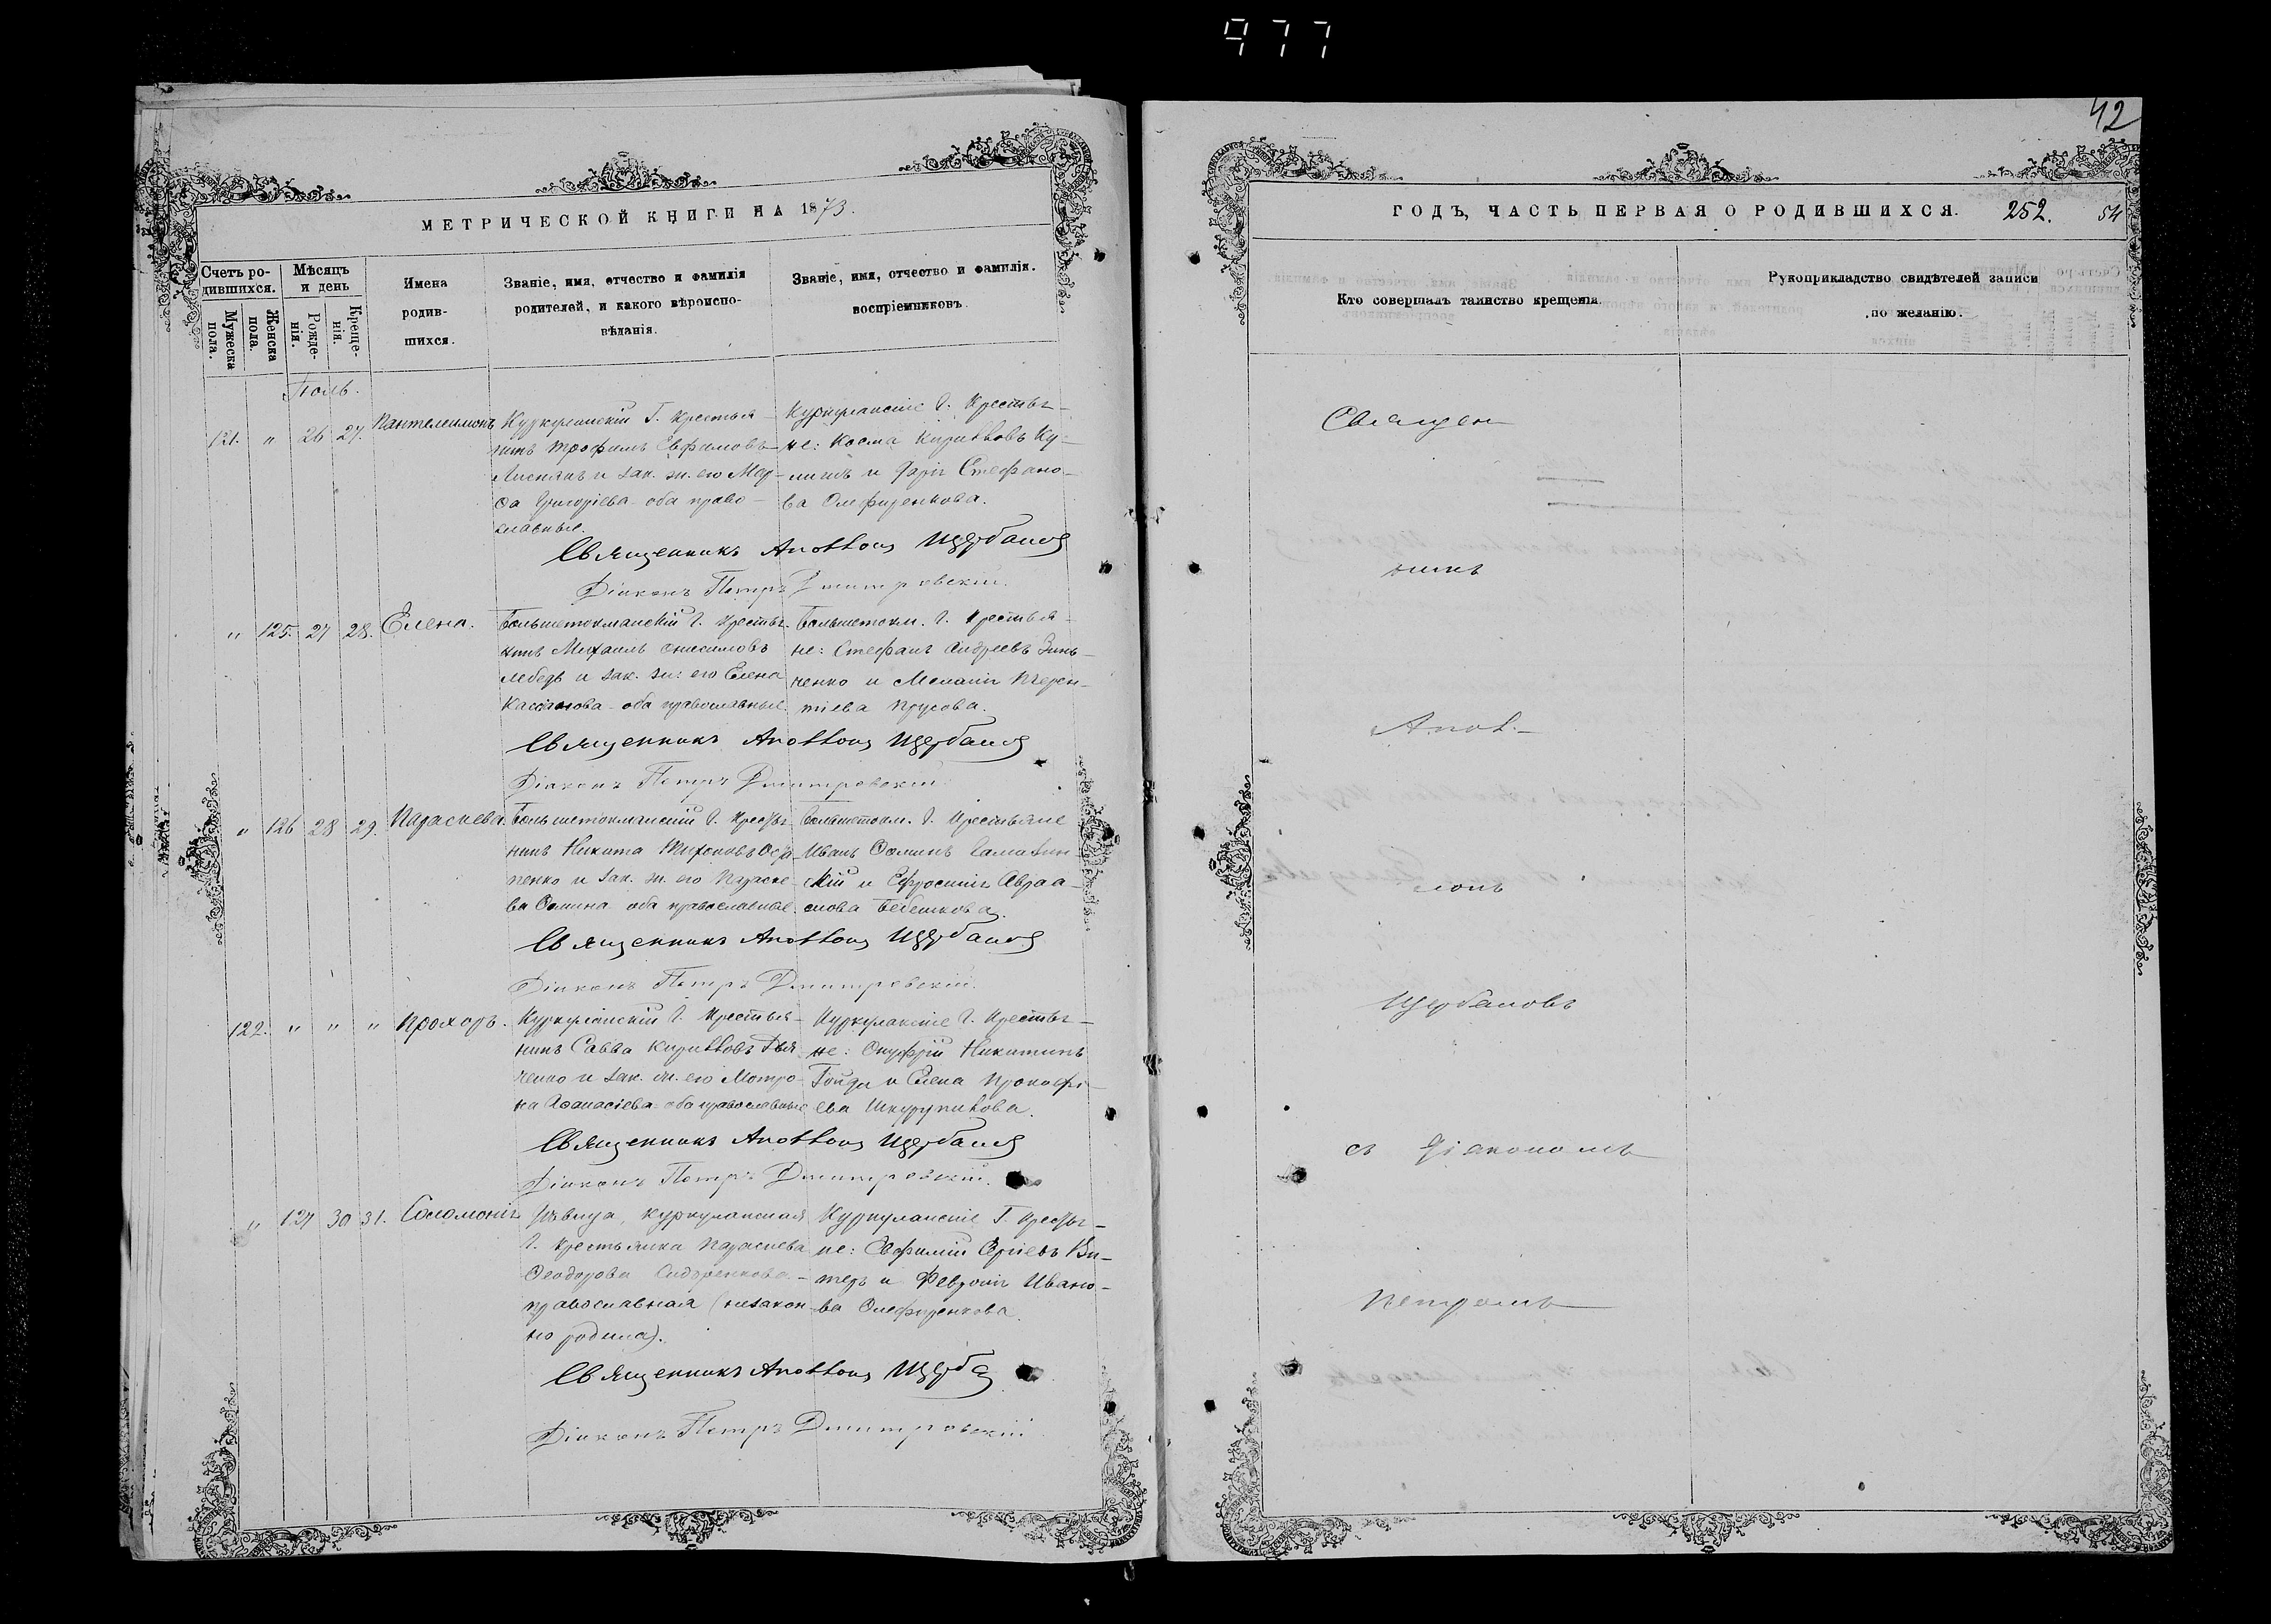 977
42
МЕТРИЧЕСКОЙ КНИГИ НА 1873.
Счетъ родившихся.
Мѣсяцъ и день
Имена родившихся.
Званіе, имя, отчество и фамилія родителей, и какого вѣроисповѣданія.
Званіе, имя, отчество и фамилія. воспріемниковъ.
Мужеска пола.
Женска пола.
Рожденія.
Крещенія.
Іюль.
121. " 26 27. Пантелеимонъ
Куркулакскій Г. крестья-
нинъ Трофимъ Евфимовъ
и зак. ж. его Мар-
Григоріева оба право-
славные.
Куркулакскіе Г. Крестья-
не: Косма Кирилловъ Ку-
и Стефано-
ва Олефиренкова.
Священникъ Аполлонъ Щербаковъ
Діаконъ Петръ Дмитровскій.
" 125. 27 28. Елена.
Большетокмакскій Г. крестья-
нинъ Михаилъ Онисимовъ
Лебедь и зак. ж: его Елена
Кассіанова оба православные.
Большетокм. Г. крестья-
не: Стефанъ Андреевъ Зинь-
ченко и Меланія Терен-
тіева Прусова.
Священникъ Аполлонъ Щербаковъ
Діаконъ Петръ Дмитровскій
" 126 28 29. Параскева.
Большетокмакскій Г. крестья-
нинъ Никита Тихоновъ Оста-
пенко и зак. ж. его Параске-
ва Ѳомина оба православные.
Большетокм. Г. Крестьяне
Иванъ Ѳоминъ
скій и Ефросинія Авраа-
мова Бебешкова.
Священникъ Аполлонъ Щербаковъ
Діаконъ Петръ Дмитровскій.
122. " " " Прохоръ.
Куркулакскій Г. Крестья-
нинъ Савва Кирилловъ Дья-
ченко и зак. ж. его Матро-
на Аѳанасіева оба православные
Куркулакскіе Г. Крестья-
не: Онуфрій Никитинъ
Гойда и Елена Прокофі-
ева Шкурупилова.
Священникъ Аполлонъ Щербаковъ
Діаконъ Петръ Дмитровскій.
" 127 30 31. Соломонія
Дѣвица, куркулакская
Г. крестьянка Параскева
Ѳеодорова Сидоренкова-
православная (незакон-
но родила).
Куркулакскіе Г. крестья-
не: Евфимій Сергіевъ Ви-
теръ и Февронія Ивано-
ва Олефиренкова.
Священникъ Аполлонъ Щерба
Діаконъ Петръ Дмитровскій
ГОДЪ, ЧАСТЬ ПЕРВАЯ О РОДИВШИХСЯ. 252. 54
Кто совершалъ таинство крещенія.
Рукоприкладство свидѣтелей записи по желанію.
Священ-
никъ
Апол-
лонъ
Щербаковъ
съ Діакономъ
Петромъ